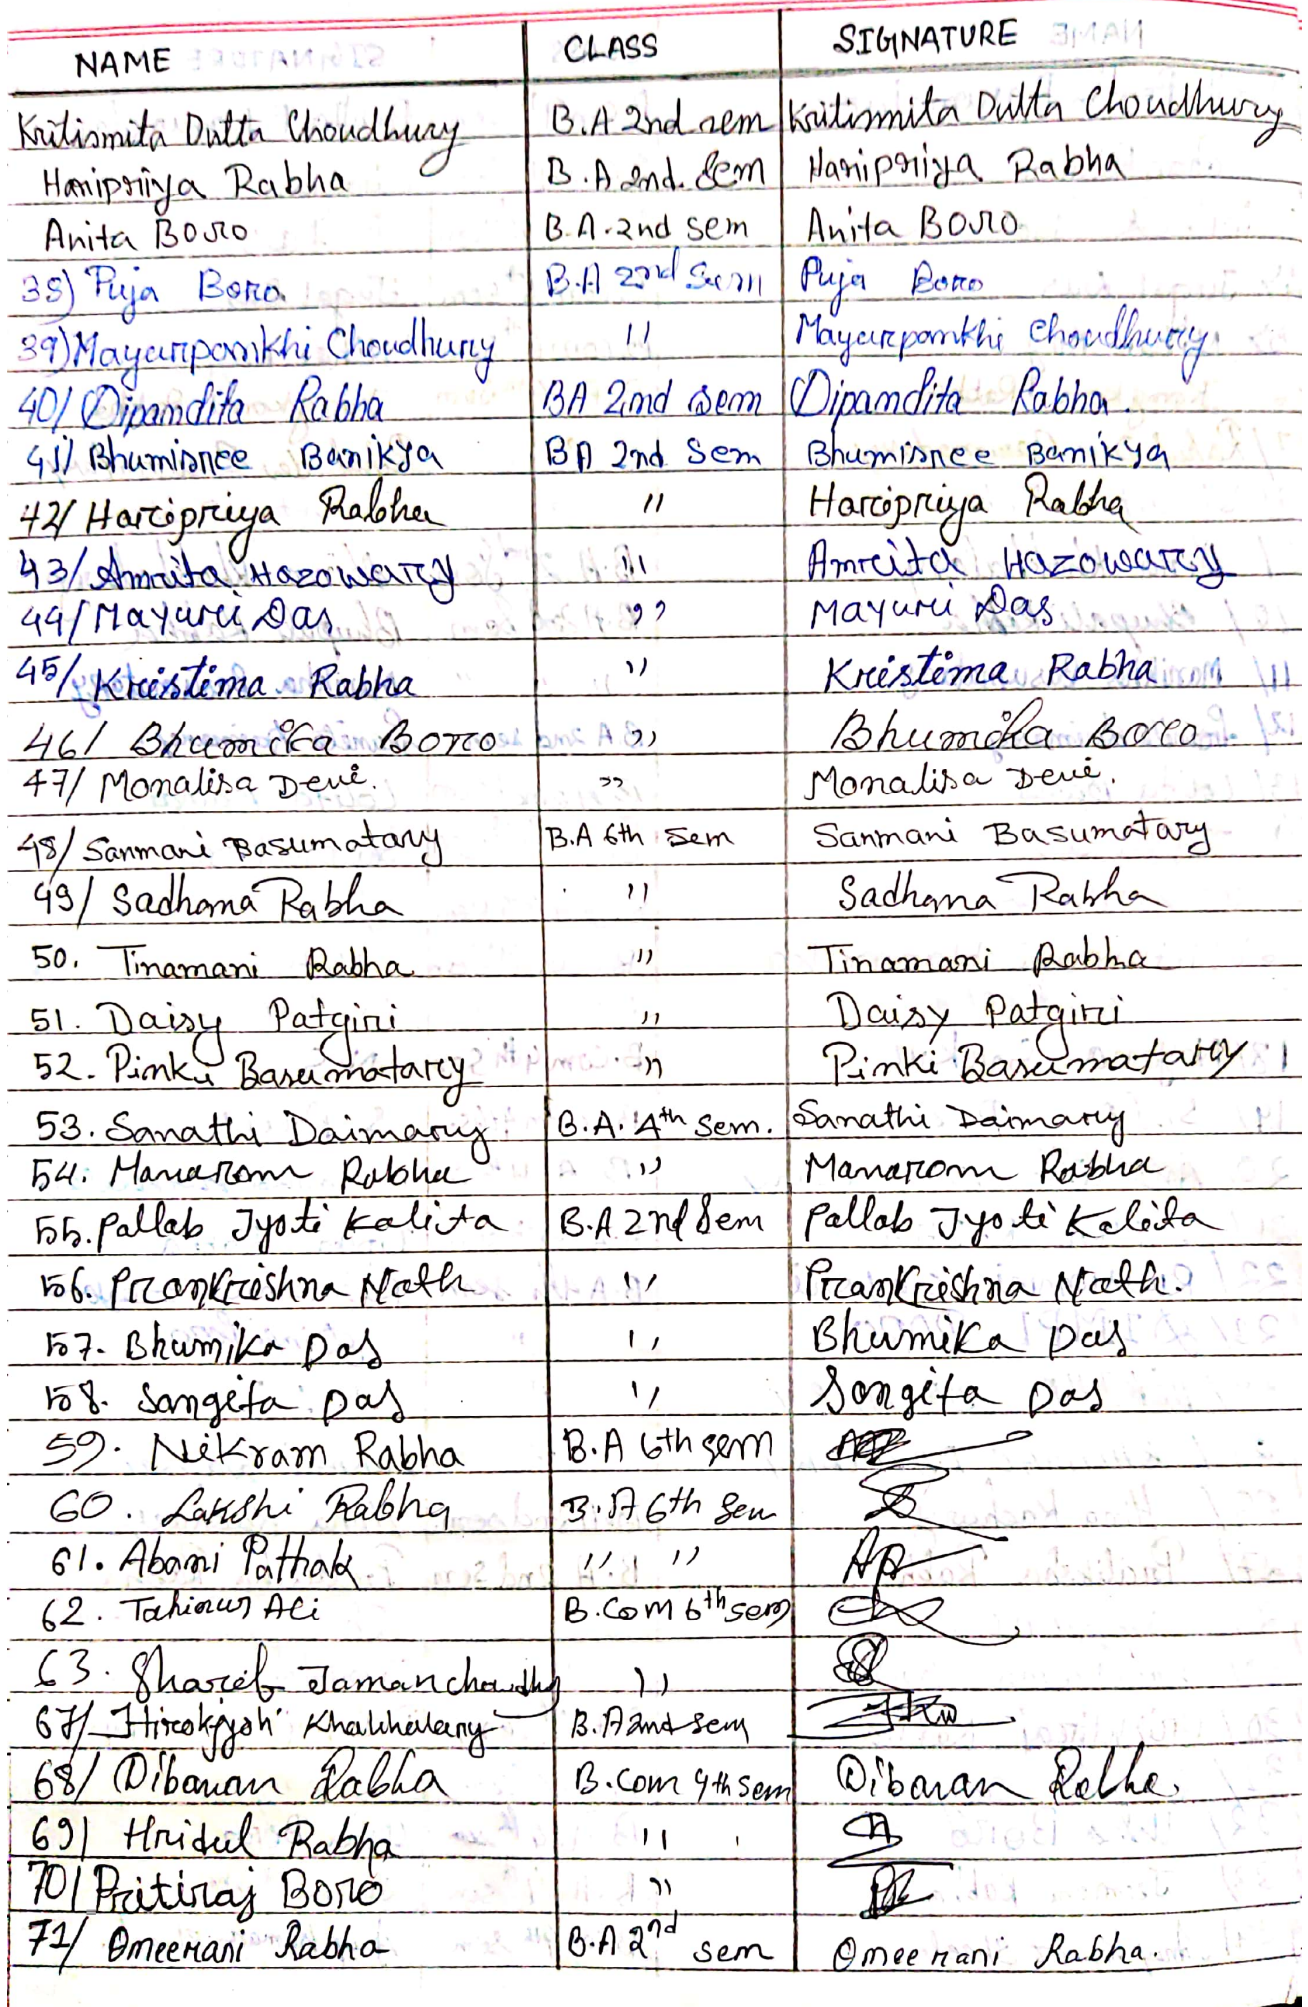 NAME CLASS SIGNATURE
Kritismita Dutta Choudhury B.A 2nd sem Kritismita Dutta Choudhury
Haripriya Rabha B.A 2nd. Sem Haripriya Rabha
Anita Boro B.A. 2nd sem Anita Boro
38) Puja Boro B.A 2nd Sem Puja Boro
39) Mayurpankhi Choudhury " Mayurpankhi Choudhury.
40/ Dipandita Rabha BA 2nd sem Dipandita Rabha.
41/ Bhumisree Banikya BA 2nd Sem Bhumisree Banikya
42/ Haripriya Rabha " Haripriya Rabha
43/ Amrita Hazowary " Amrita Hazowary
44/ Mayuri Das " Mayuri Das
45/ Kristima Rabha " Kristima Rabha
46/ Bhumika Boro " Bhumika Boro
47/ Monalisa Devi. " Monalisa Devi.
48/ Sanmani Basumatary B.A 6th sem Sanmani Basumatary
49/ Sadhana Rabha " Sadhana Rabha
50. Tinamani Rabha " Tinamani Rabha
51. Daisy Patgiri " Daisy Patgiri
52. Pinki Basumatary " Pinki Basumatary
53. Sanathi Daimary B.A. 4th sem. Sanathi Daimary
54. Manarom Rabha " Manarom Rabha
55. Pallab Jyoti Kalita B.A 2nd Sem Pallab Jyoti Kalita
56. Prankrishna Nath " Prankrishna Nath.
57. Bhumika Das " Bhumika Das
58. Sangita Das " Sangita Das
59. Nikram Rabha B.A 6th sem
60. Lakshi Rabha B.A 6th Sem
61. Abani Pathak " " AP
62. Ali B.Com 6th sem
63. Jaman "
67/ B.A 2nd sem
68/ Dibaran Rabha B.Com 4th sem Dibaran Rabha.
69) Hridul Rabha "
70) Pritiraj Boro "
71/ Omeerani Rabha B.A 2nd sem Omeerani Rabha.